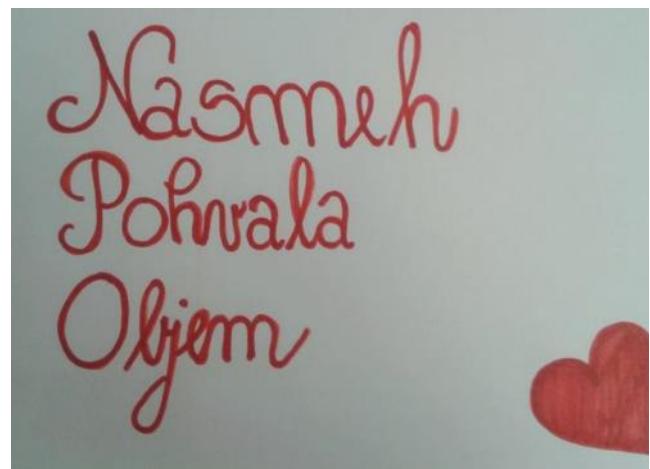 Nasmeh
Pohvala
Objem